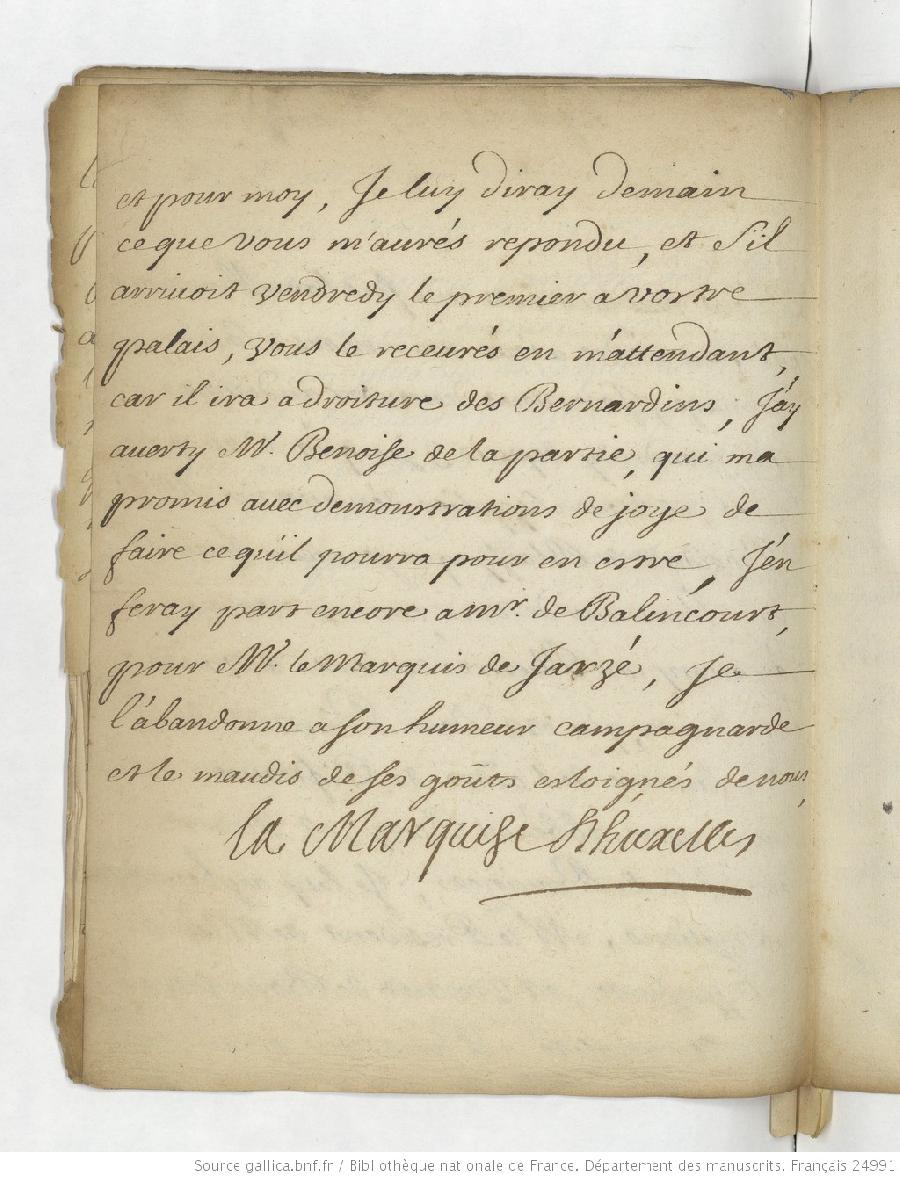 et pour moy, Je luy diray demain
ce que vous m'aurés repondu, et s'il
arrivoit vendredy le premier a vostre
palais, vous le receurés en m'attendant,
car il ira a droiture des Bernardins, J'ay
averty Mr. Benoise de la partie, qui ma
promis avec demonstrations de joye de
faire ce qu'il pourra pour en estre, J'en
feray part encore a mr. de Balincourt,
pour Mr. le Marquis de Jarzé, Je
l'abandonne a son humeur campagnarde
et le maudis de ses goûts esloignés de nous,
la Marquise d'huxelles
Source gallica.bnf.fr / Bibliothèque nationale de France. Département des manuscrits. Français 24991